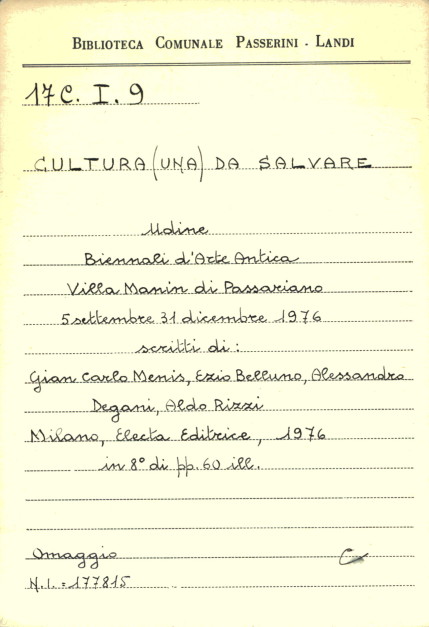 BIBLIOTECA COMUNALE PASSERINI - LANDI
17C. I. 9
CULTURA (UNA) DA SALVARE
Udine
Biennali d'Arte Antica
Villa Manin di Passariano
5 settembre 31 dicembre 1976
scritti di :
Gian Carlo Menis, Ezio Belluno, Alessandro
Degani, Aldo Rizzi
Milano, Electa Editrice, 1976
in 8° di pp. 60 ill.
Omaggio C
N.I. = 177815